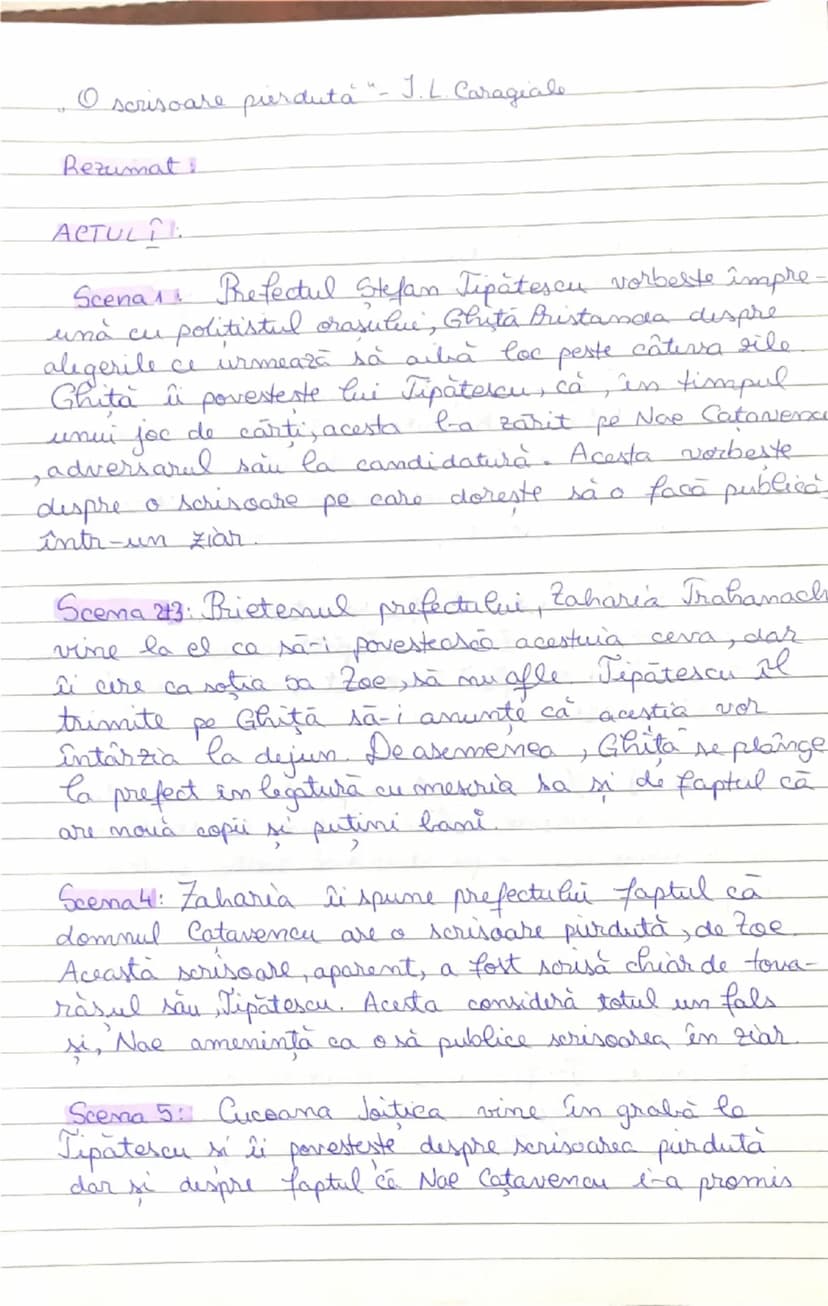 „O scrisoare pierdută" - I. L. Caragiale
Rezumat:
ACTUL I:
Scena 1: Prefectul Ștefan Tipătescu vorbește împre-
ună cu polițistul orașului, Ghiță Pristanda despre
alegerile ce urmează să aibă loc peste câteva zile.
Ghiță îi povestește lui Tipătescu, că, în timpul
unui joc de cărți, acesta l-a zărit pe Nae Cațavencu
, adversarul său la candidatură. Acesta vorbește
despre o scrisoare pe care dorește să o facă publică
într-un ziar.
Scena 2+3: Prietenul prefectului, Zaharia Trahanach
vine la el ca să-i povestească acestuia ceva, dar
îi cere ca soția sa Zoe, să nu afle. Tipătescu îl
trimite pe Ghiță să-i anunțe că aceștia vor
întârzia la dejun. De asemenea, Ghiță se plânge
la prefect în legătură cu meseria sa și de faptul că
are nouă copii și puțini bani.
Scena 4: Zaharia îi spune prefectului faptul că
domnul Cațavencu are o scrisoare pierdută, de Zoe.
Această scrisoare, aparent, a fost scrisă chiar de tova-
rășul său, Tipătescu. Acesta consideră totul un fals
și, Nae amenință ca o să publice scrisoarea în ziar.
Scena 5: Cucoana Joițica vine în grabă la
Tipătescu și îi povestește despre scrisoarea pierdută
dar și despre faptul că Nae Cațavencu i-a promis